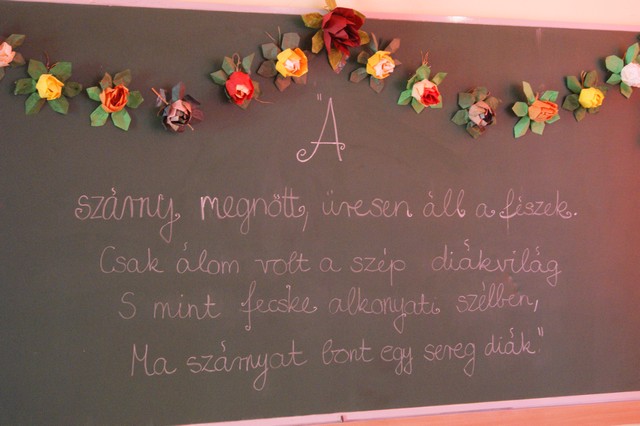 "A
szárny megnőtt, üresen áll a fészek.
Csak álom volt a szép diákvilág
S mint fecske alkonyati szélben,
Ma szárnyat bont egy sereg diák."